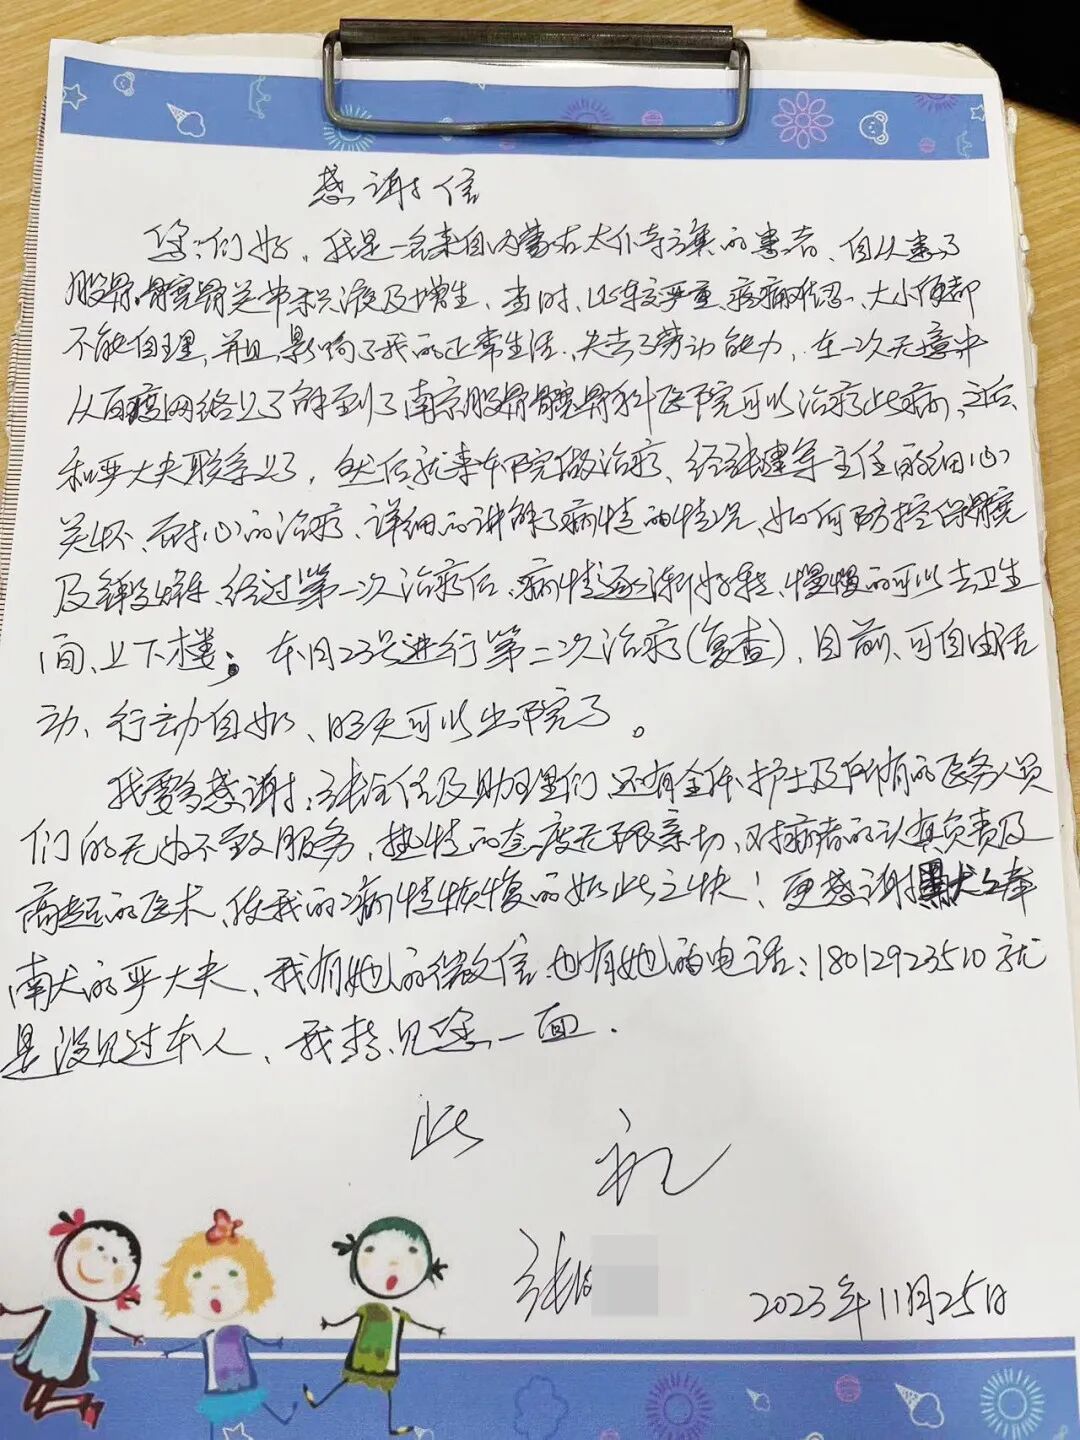 感谢信
您们好，我是一名来自内蒙古太仆寺旗的患者，自从患了
股骨髋骨关节积液及增生，当时，比较严重，疼痛难忍、大小便都
不能自理，并且影响了我的正常生活、失去了劳动能力，在一次无意中
从百度网络上了解到了南京股骨髋骨科医院可以治疗此病，之后
和严大夫联系上了，然后就来本院做治疗、经张建军主任的细心
关怀、耐心的治疗、详细的讲解了病情的情况、如何防控保髋
及锻炼、经过第一次治疗后、病情逐渐好转、慢慢的可以去卫生
间、上下楼。本月23号进行第二次治疗（复查），目前、可自由活
动、行动自如、明天可以出院了。
我要感谢：张主任及助理们、还有全体护士及所有的医务人员
们的无为不致服务，热情的态度无限亲切，对病者的认真负责及
高超的医术、使我的病情恢复的如此之快！更感谢
南大的严大夫、我有她的微信也有她的电话：18012923510就
是没见过本人、我想见您一面.
此 礼
张
2023年11月25日